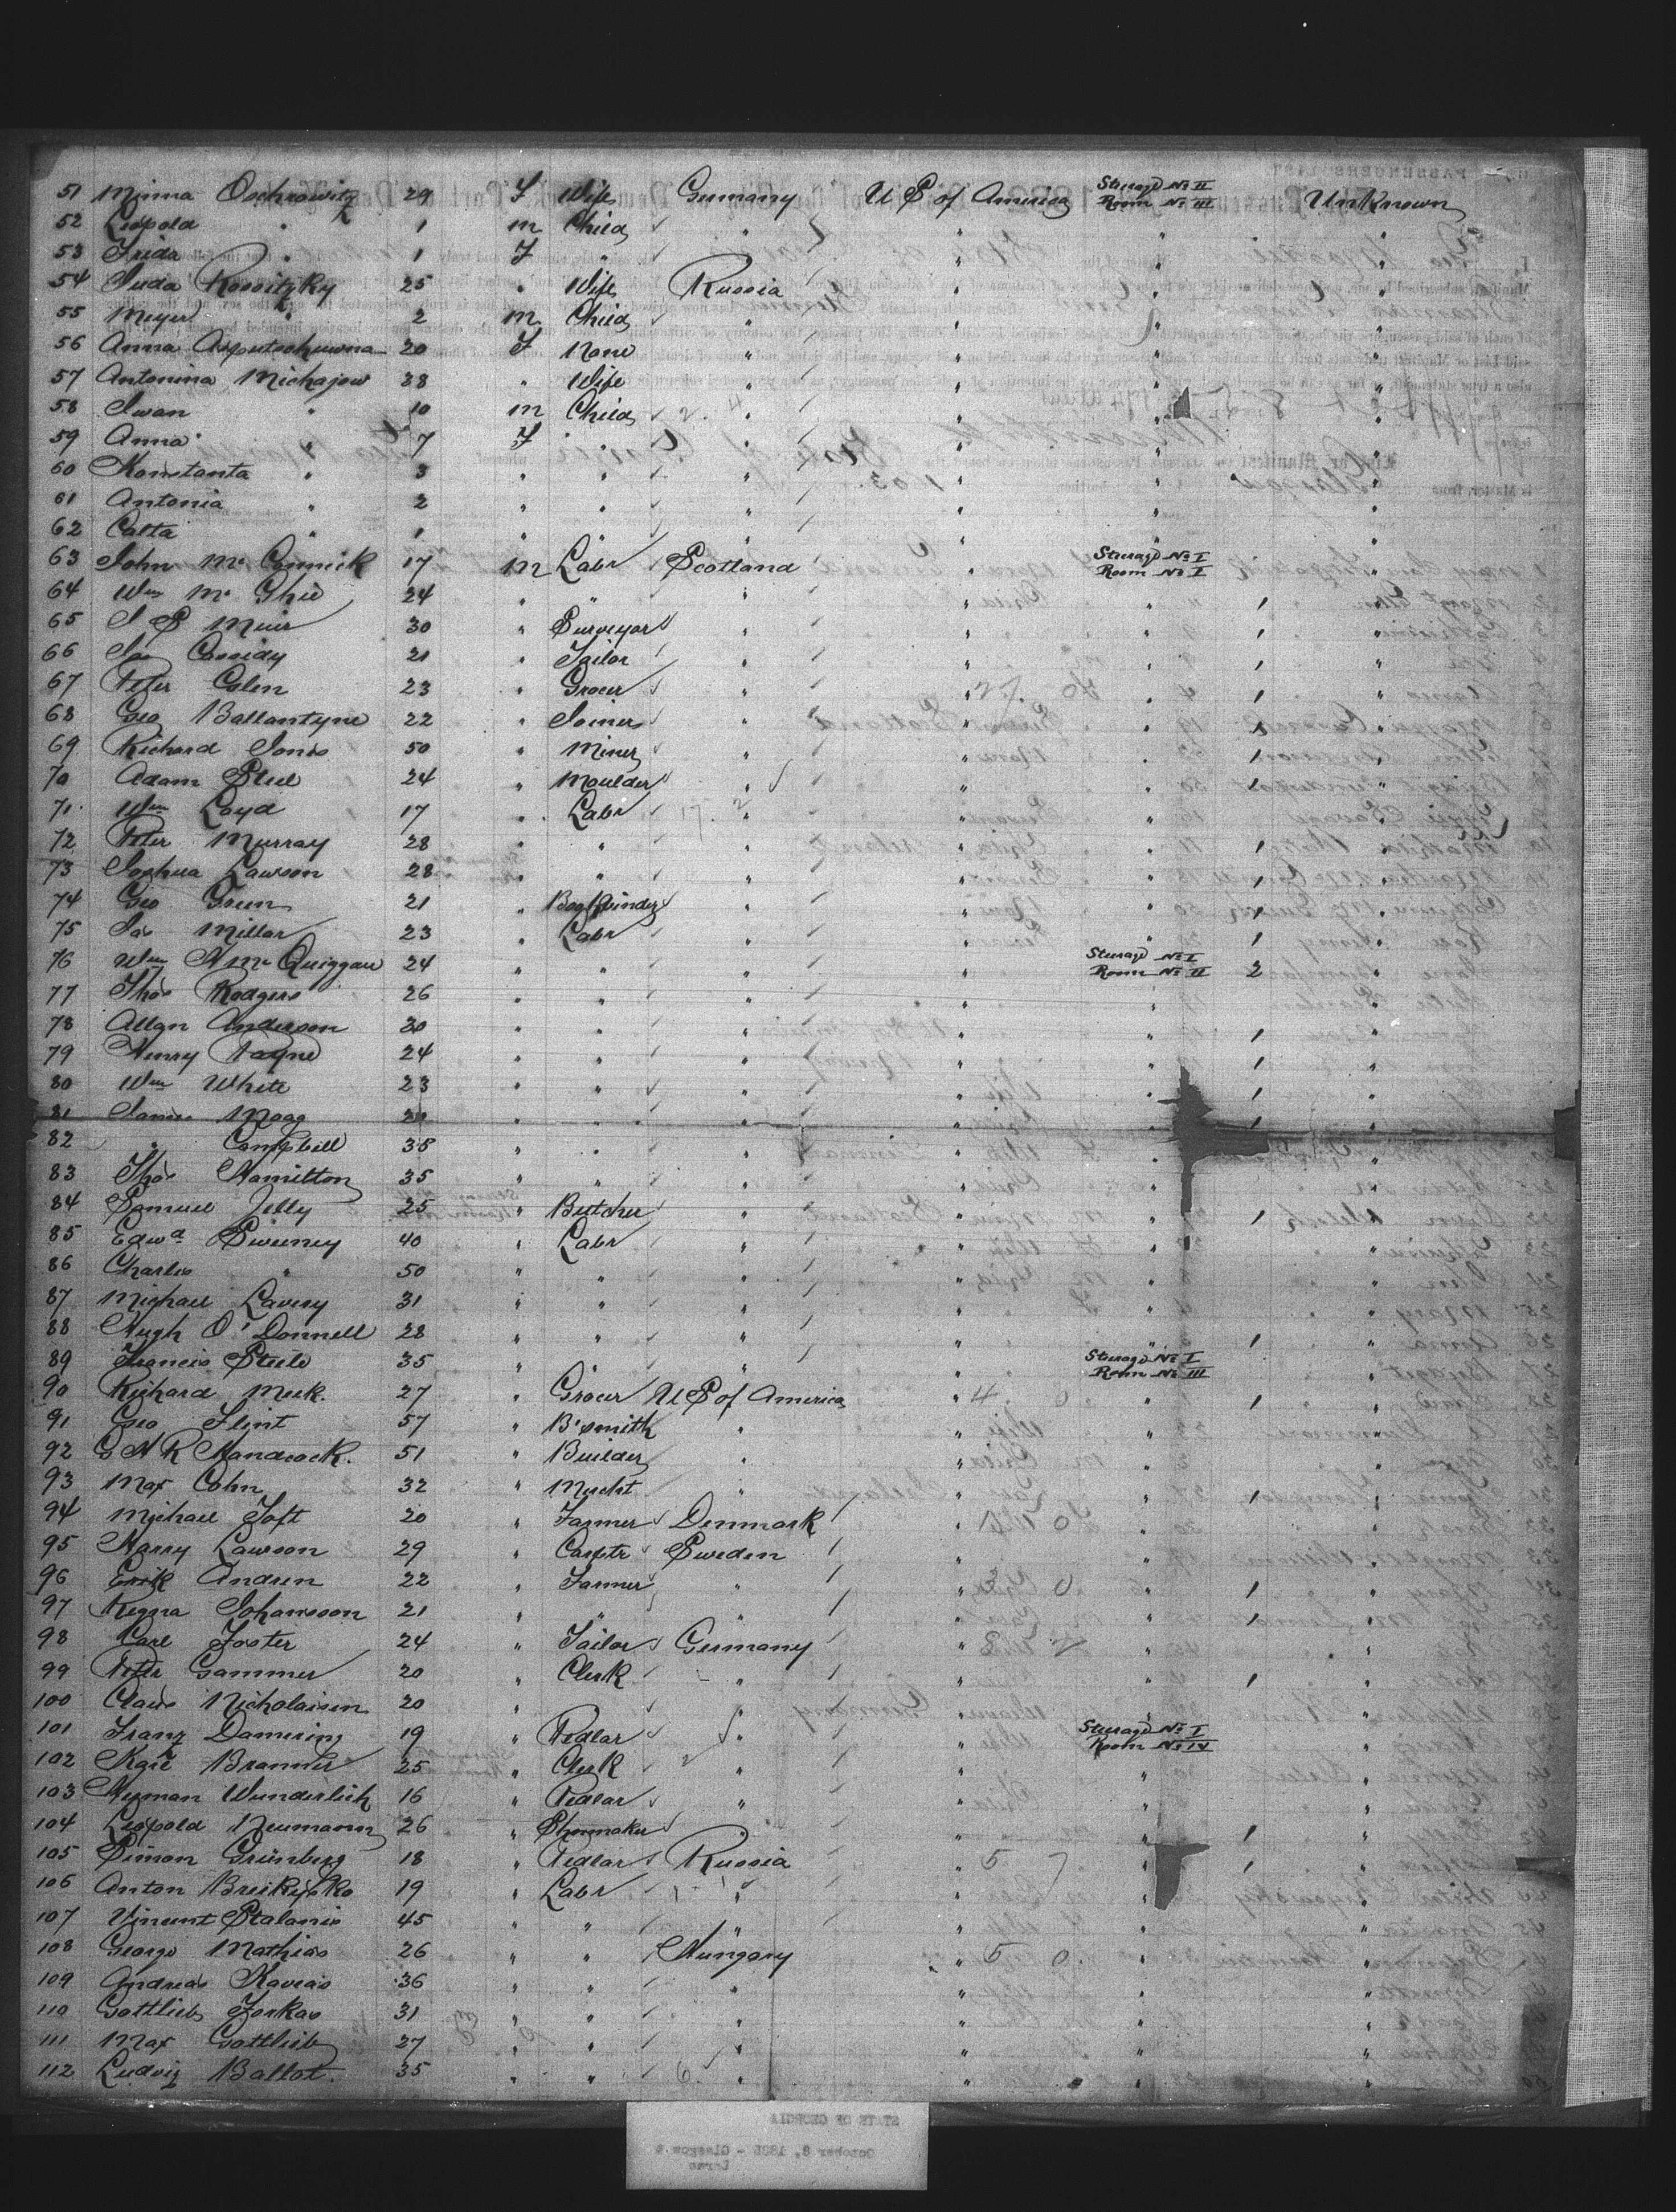 51 Minna Oschrowitz 29 F Wife Germany U S of America Sterage No II Room No III Unknown
52 Leopold " 1 m Child " " " "
53 Frida " 1 F " " " " "
54 Juda Rossitzky 25 " Wife Russia " " "
55 Meyer " 2 m Child " " " "
56 Anna 20 F None " " " "
57 Antonina Michajow 28 " Wife " " " "
58 Iwan " 10 m Child " " " "
59 Anna " 7 F " " " " "
60 Konstanta " 3 " " " " " "
61 Antonia " 2 " " " " " "
62 Casta " 1 " " " " " "
63 John Mc Cormick 17 m Labr Scotland " Sterage No I Room No I "
64 Wm Mc Ghie 24 " " " " " "
65 J S Muir 30 " Surveyor " " " "
66 Jas Cassidy 21 " Tailor " " " "
67 Peter Colen 23 " Grocer " " " "
68 Geo Ballantyne 22 " Joiner " " " "
69 Richard Jones 50 " Miner " " " "
70 Adam Steel 24 " Moulder " " " "
71 Wm Loyd 17 " Labr " " " "
72 Peter Murray 28 " " " " " "
73 Joshua Lawson 28 " " " " " "
74 Geo Green 21 " Bookbinder " " " "
75 Jas Millar 23 " Labr " " " "
76 Wm A Mc Quiggan 24 " " " " Sterage No I Room No II "
77 Thos Rodgers 26 " " " " " "
78 Allan Anderson 30 " " " " " "
79 Henry Payne 24 " " " " " "
80 Wm White 23 " " " " " "
81 James Moag " " " " " "
82 " Campbell 38 " " " " " "
83 Thos Hamilton 35 " " " " " "
84 Samuel Jelly 25 " Butcher " " " "
85 Edwd Sweeney 40 " Labr " " " "
86 Charles " 50 " " " " " "
87 Michael Lavery 31 " " " " " "
88 Hugh O'Donnell 28 " " " " " "
89 Francis Steele 35 " " " " Sterage No I Room No III "
90 Richard Meek. 27 " Grocer U S of America " " "
91 Geo Flint 57 " B'smith " " " "
92 G H R Handcock. 51 " Builder " " " "
93 Max Cohn 32 " Mercht " " " "
94 Michael Toft 20 " Farmer Denmark " " "
95 Harry Lawson 29 " Carptr Sweden " " "
96 Erik Andren 22 " Farmer " " " "
97 Regna Johansson 21 " " " " " "
98 Carl Foster 24 " Tailor Germany " " "
99 Peter Gammer 20 " Clerk " " " "
100 Claus Nicholaisen 20 " " " " " "
101 Franz Damering 19 " Pedlar " " Sterage No I Room No IV "
102 Brammer 25 " Clerk " " " "
103 Heyman Wunderlich 16 " Pedlar " " " "
104 Leopold Neumann 26 " Shoemaker " " " "
105 Simon Grünberg 18 " Pedlar Russia " " "
106 Anton 19 " Labr " " " "
107 Vincent Stalanis 45 " " " " " "
108 George Mathias 26 " " Hungary " " "
109 Andreas Kavcas 36 " " " " " "
110 Gottlieb Forkas 31 " " " " " "
111 Max Gottlieb 27 " " " " " "
112 Ludvig Ballot. 35 " " " " " "
STATE OF GEORGIA
October 8, 1885 - Glasgow &
Larne